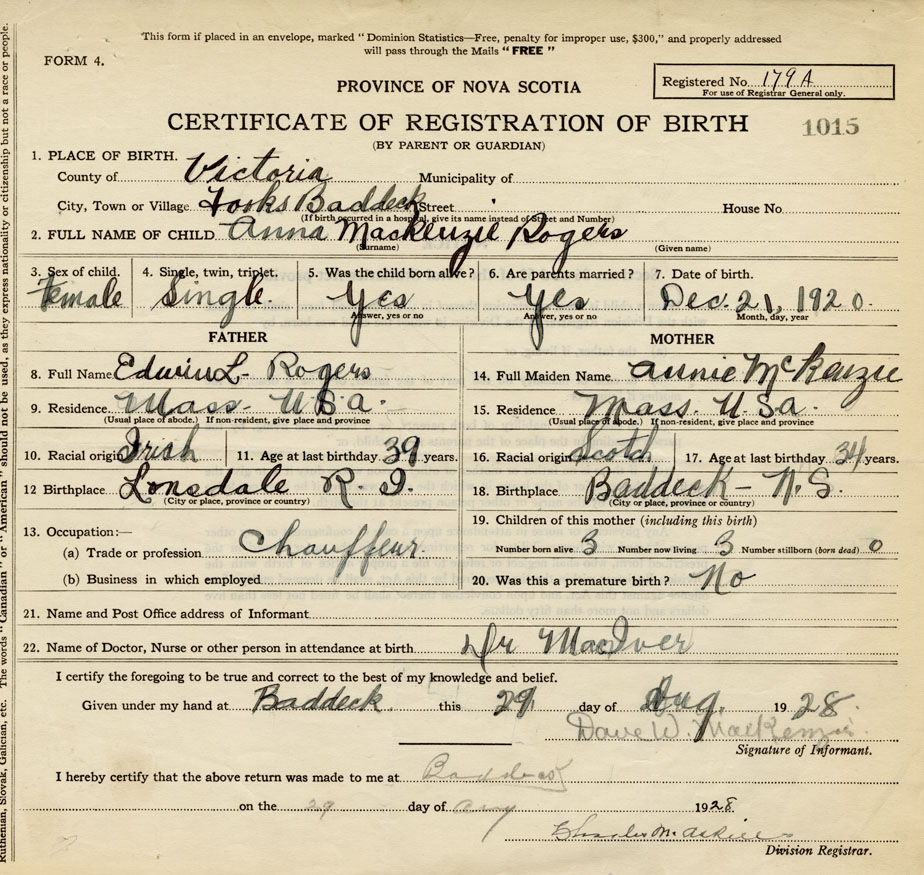 This form if placed in an envelope, marked "Dominion Statistics—Free, penalty for improper use, $300," and properly addressed
will pass through the Mails "FREE"
FORM 4.
PROVINCE OF NOVA SCOTIA
Registered No. 179 A
For use of Registrar General only.
CERTIFICATE OF REGISTRATION OF BIRTH
1015
(BY PARENT OR GUARDIAN)
1. PLACE OF BIRTH.
County of Victoria Municipality of
City, Town or Village Forks Baddeck Street House No.
(If birth occurred in a hospital, give its name instead of Street and Number)
2. FULL NAME OF CHILD Anna Mackenzie Rogers
(Surname) (Given name)
3. Sex of child. 4. Single, twin, triplet. 5. Was the child born alive? 6. Are parents married? 7. Date of birth.
Female Single. Yes Yes Dec. 21, 1920.
Answer, yes or no Answer, yes or no Month, day, year
FATHER MOTHER
8. Full Name Edwin L- Rogers 14. Full Maiden Name Annie McKenzie
9. Residence Mass- U.S.a. 15. Residence Mass. U.Sa.
(Usual place of abode.) If non-resident, give place and province (Usual place of abode.) If non-resident, give place and province
10. Racial origin Irish 11. Age at last birthday 39 years. 16. Racial origin Scotch 17. Age at last birthday 34 years.
12 Birthplace Lonsdale R. I. 18. Birthplace Baddeck - N.S.
(City or place, province or country) (City or place, province or country)
13. Occupation:— 19. Children of this mother (including this birth)
(a) Trade or profession Chauffeur. Number born alive 3 Number now living 3 Number stillborn (born dead) 0
(b) Business in which employed 20. Was this a premature birth? No
21. Name and Post Office address of Informant
22. Name of Doctor, Nurse or other person in attendance at birth Dr MacIver
I certify the foregoing to be true and correct to the best of my knowledge and belief.
Given under my hand at Baddeck this 29 day of Aug. 1928.
Dave W. MacKenzie
Signature of Informant.
I hereby certify that the above return was made to me at Baddeck
on the 29 day of Aug 1928
Division Registrar.
Ruthenian, Slovak, Galician, etc. The words "Canadian" or "American" should not be used, as they express nationality or citizenship but not a race or people.